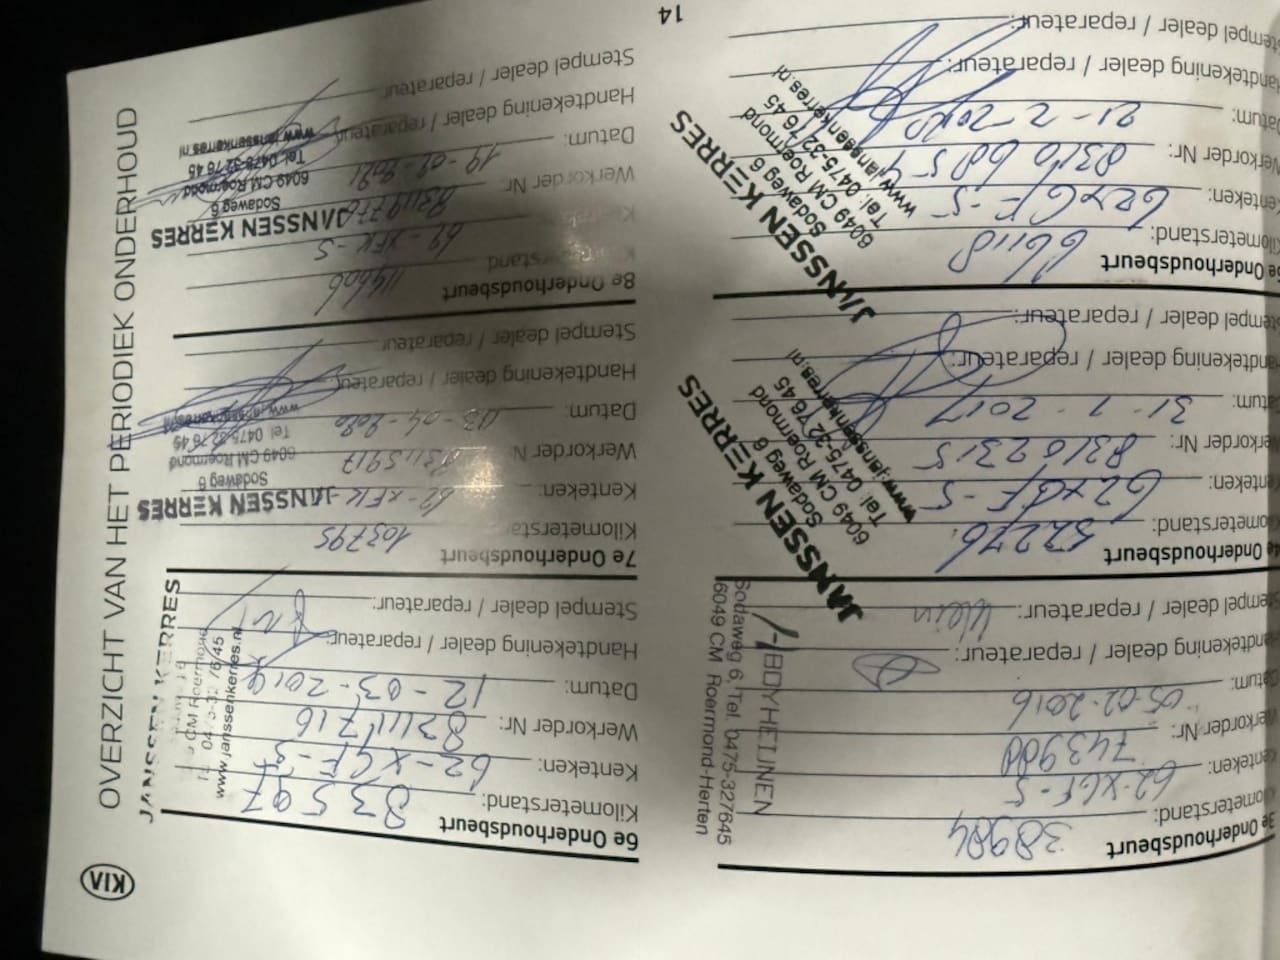 KIA
OVERZICHT VAN HET PERIODIEK ONDERHOUD
3e Onderhoudsbeurt
Kilometerstand: 38984
Kenteken: 62-XGF-5
Werkorder Nr: 743900
Datum: 05-02-2016
Handtekening dealer / reparateur:
Stempel dealer / reparateur: klein
BOYHEIJNEN
Sodaweg 6, Tel. 0475-327645
6049 CM Roermond-Herten
4e Onderhoudsbeurt
Kilometerstand: 52276
Kenteken: 62XGF-5
Werkorder Nr: 83102315
Datum: 31-1-2017
Handtekening dealer / reparateur:
Stempel dealer / reparateur:
JANSSEN KERRES
Sodaweg 6
6049 CM Roermond
Tel: 0475-32 76 45
www.janssenkerres.nl
Onderhoudsbeurt
Kilometerstand: 66118
Kenteken: 62XGF-5
Werkorder Nr:
Datum: 21-2-
Handtekening dealer / reparateur:
Stempel dealer / reparateur:
JANSSEN KERRES
Sodaweg 6
6049 CM Roermond
Tel: 0475-32 76 45
www.janssenkerres.nl
6e Onderhoudsbeurt
Kilometerstand: 83597
Kenteken: 62-XGF-5
Werkorder Nr: 83111716
Datum: 12-03-2019
Handtekening dealer / reparateur:
Stempel dealer / reparateur:
JANSSEN KERRES
CM Roermond
0475-32 76 45
www.janssenkerres.nl
7e Onderhoudsbeurt
Kilometerstand 103795
Kenteken: 62-XFK-
Werkorder N 83115917
Datum: 03-04-2020
Handtekening dealer / reparateur:
Stempel dealer / reparateur:
JANSSEN KERRES
Sodaweg 6
6049 CM Roermond
Tel. 0475-32 76 45
www.janssenkerres.nl
8e Onderhoudsbeurt
114606
62-XFK-5
Werkorder Nr
Datum: 19-02-2021
Handtekening dealer / reparateur:
Stempel dealer / reparateur:
JANSSEN KERRES
Sodaweg 6
6049 CM Roermond
Tel. 0475-32 76 45
www.janssenkerres.nl
14